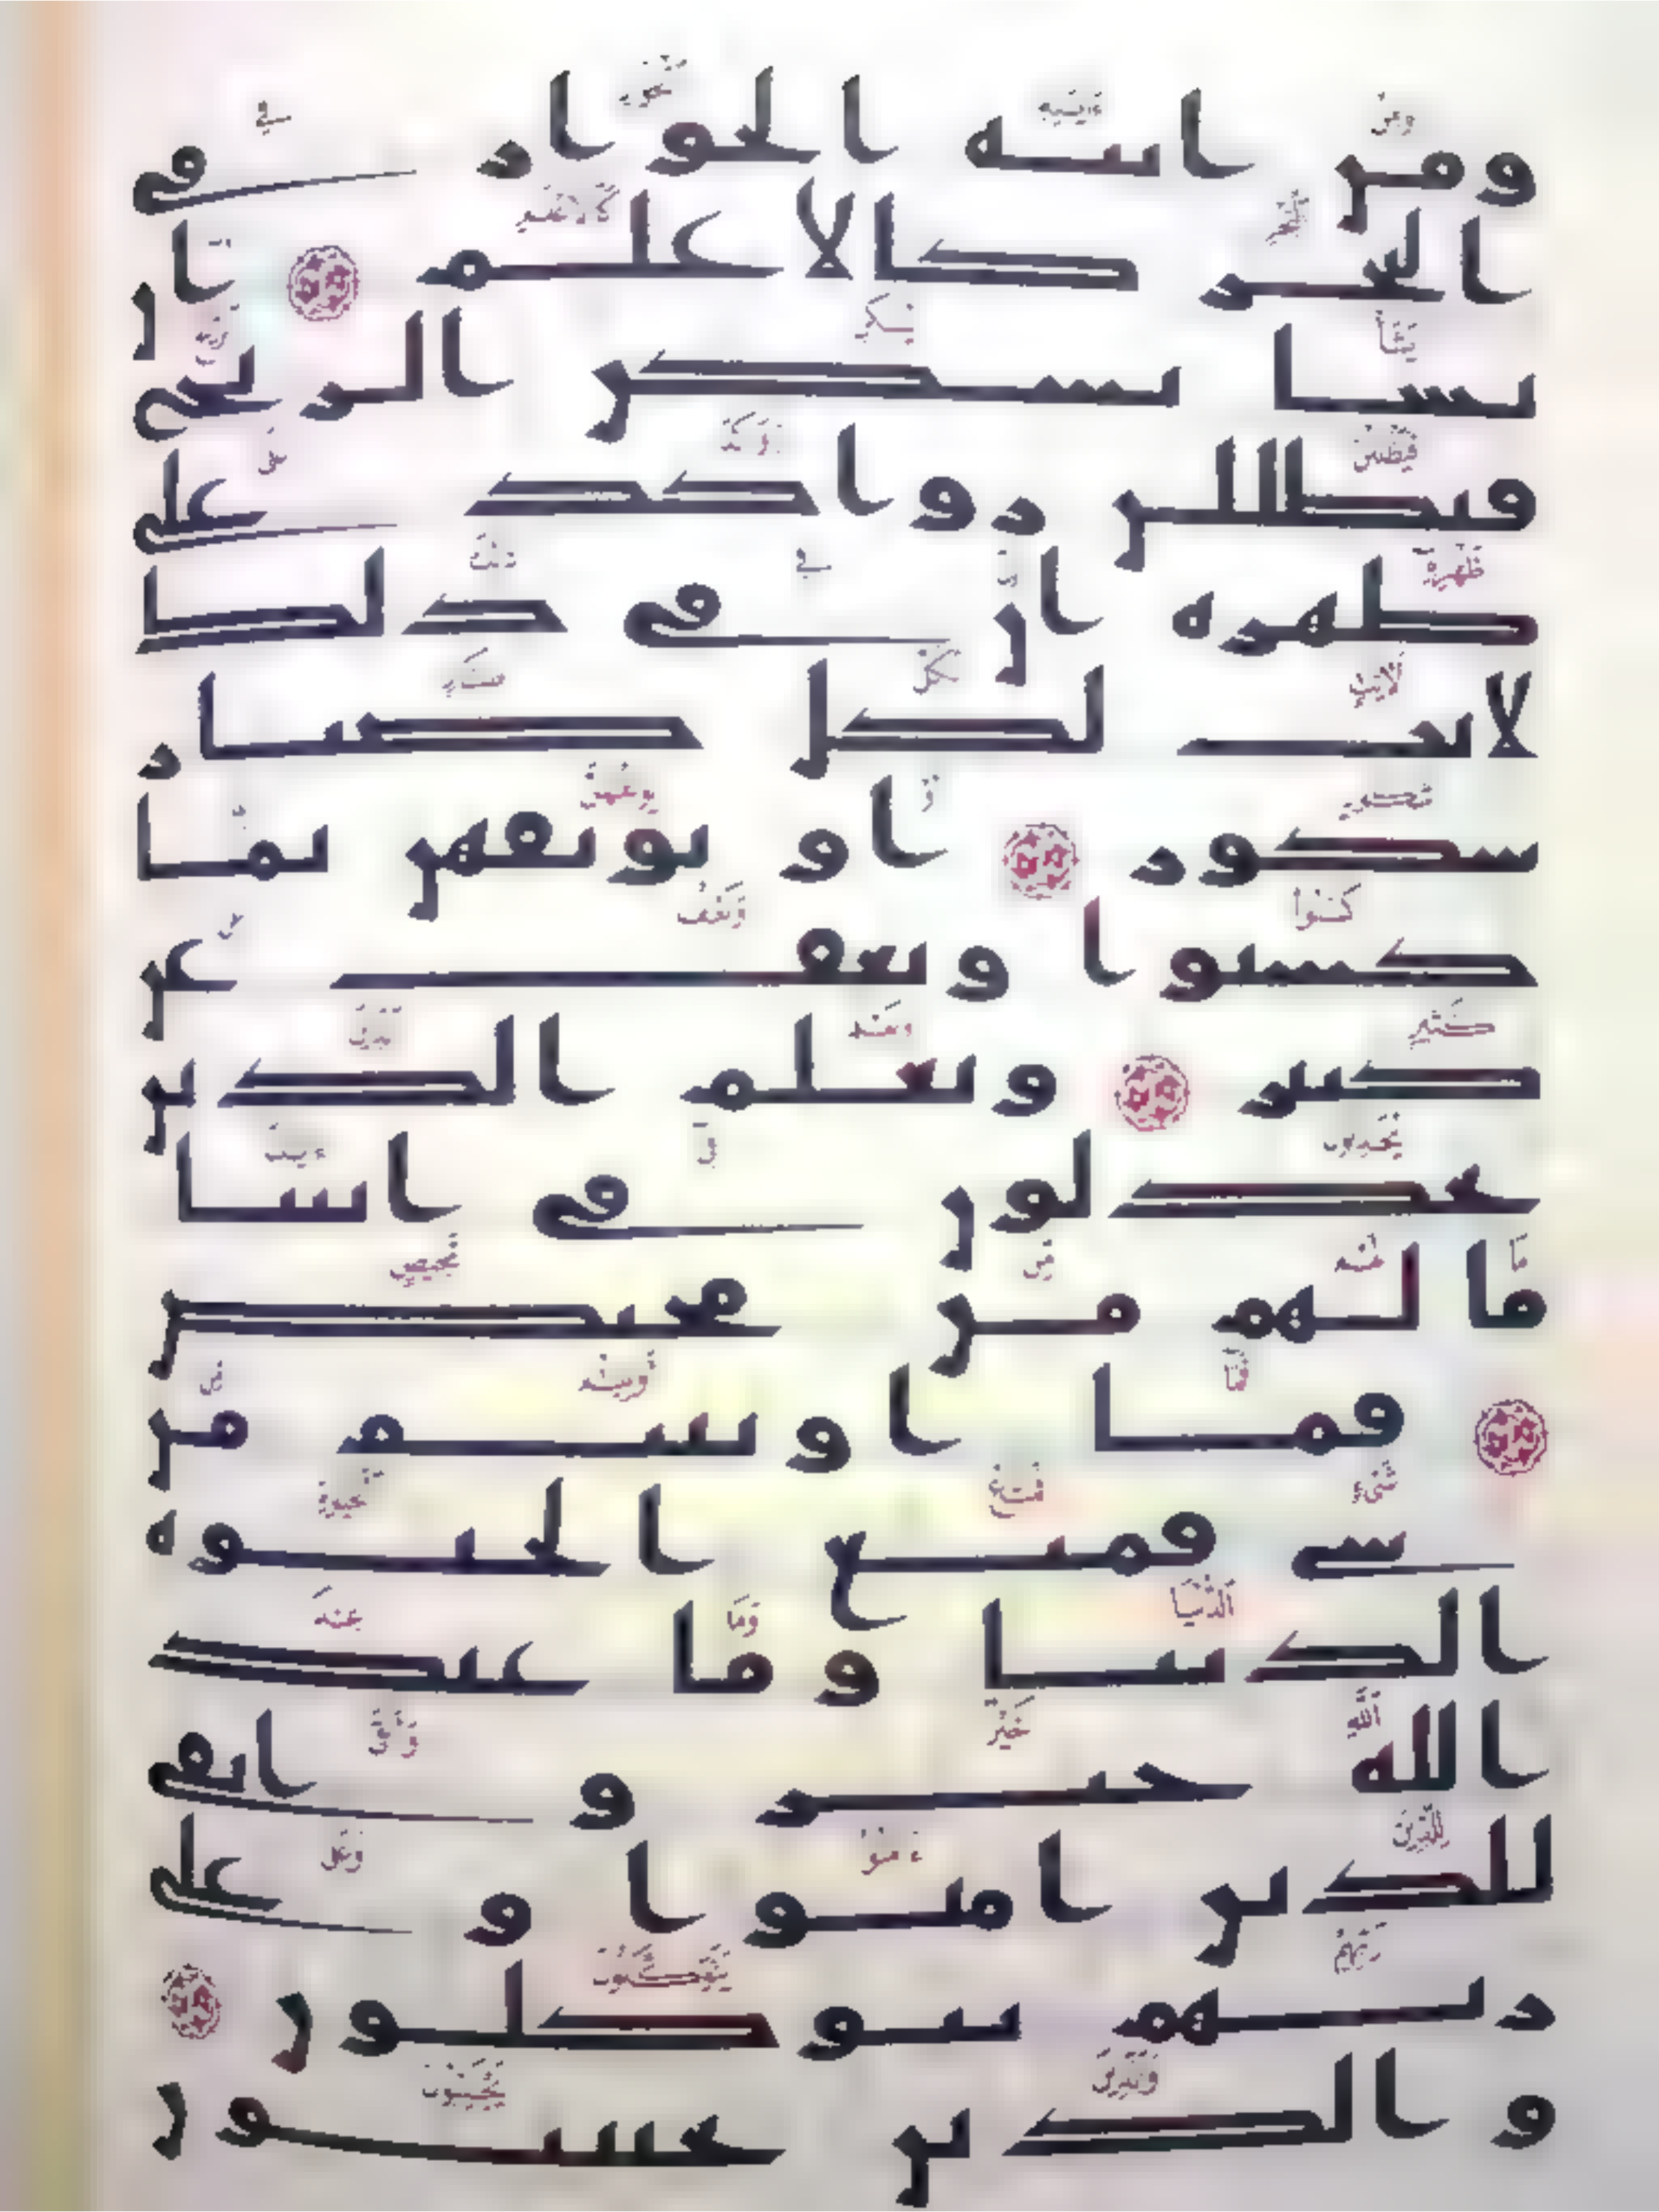 ومن ايته الجوار في
البحر كالاعلم ان
يشا يسكن الريح
فيظللن رواكد على
ظهره ان في ذلك
لايت لكل صبار
شكور او يوبقهن بما
كسبوا ويعف عن
كثير ويعلم الذين
يجدلون في ايتنا
ما لهم من محيص
فما اوتيتم من
شي فمتع الحيوه
الدنيا وما عند
الله خير وابقى
للذين امنوا وعلى
ربهم يتوكلون
والذين يجتنبون